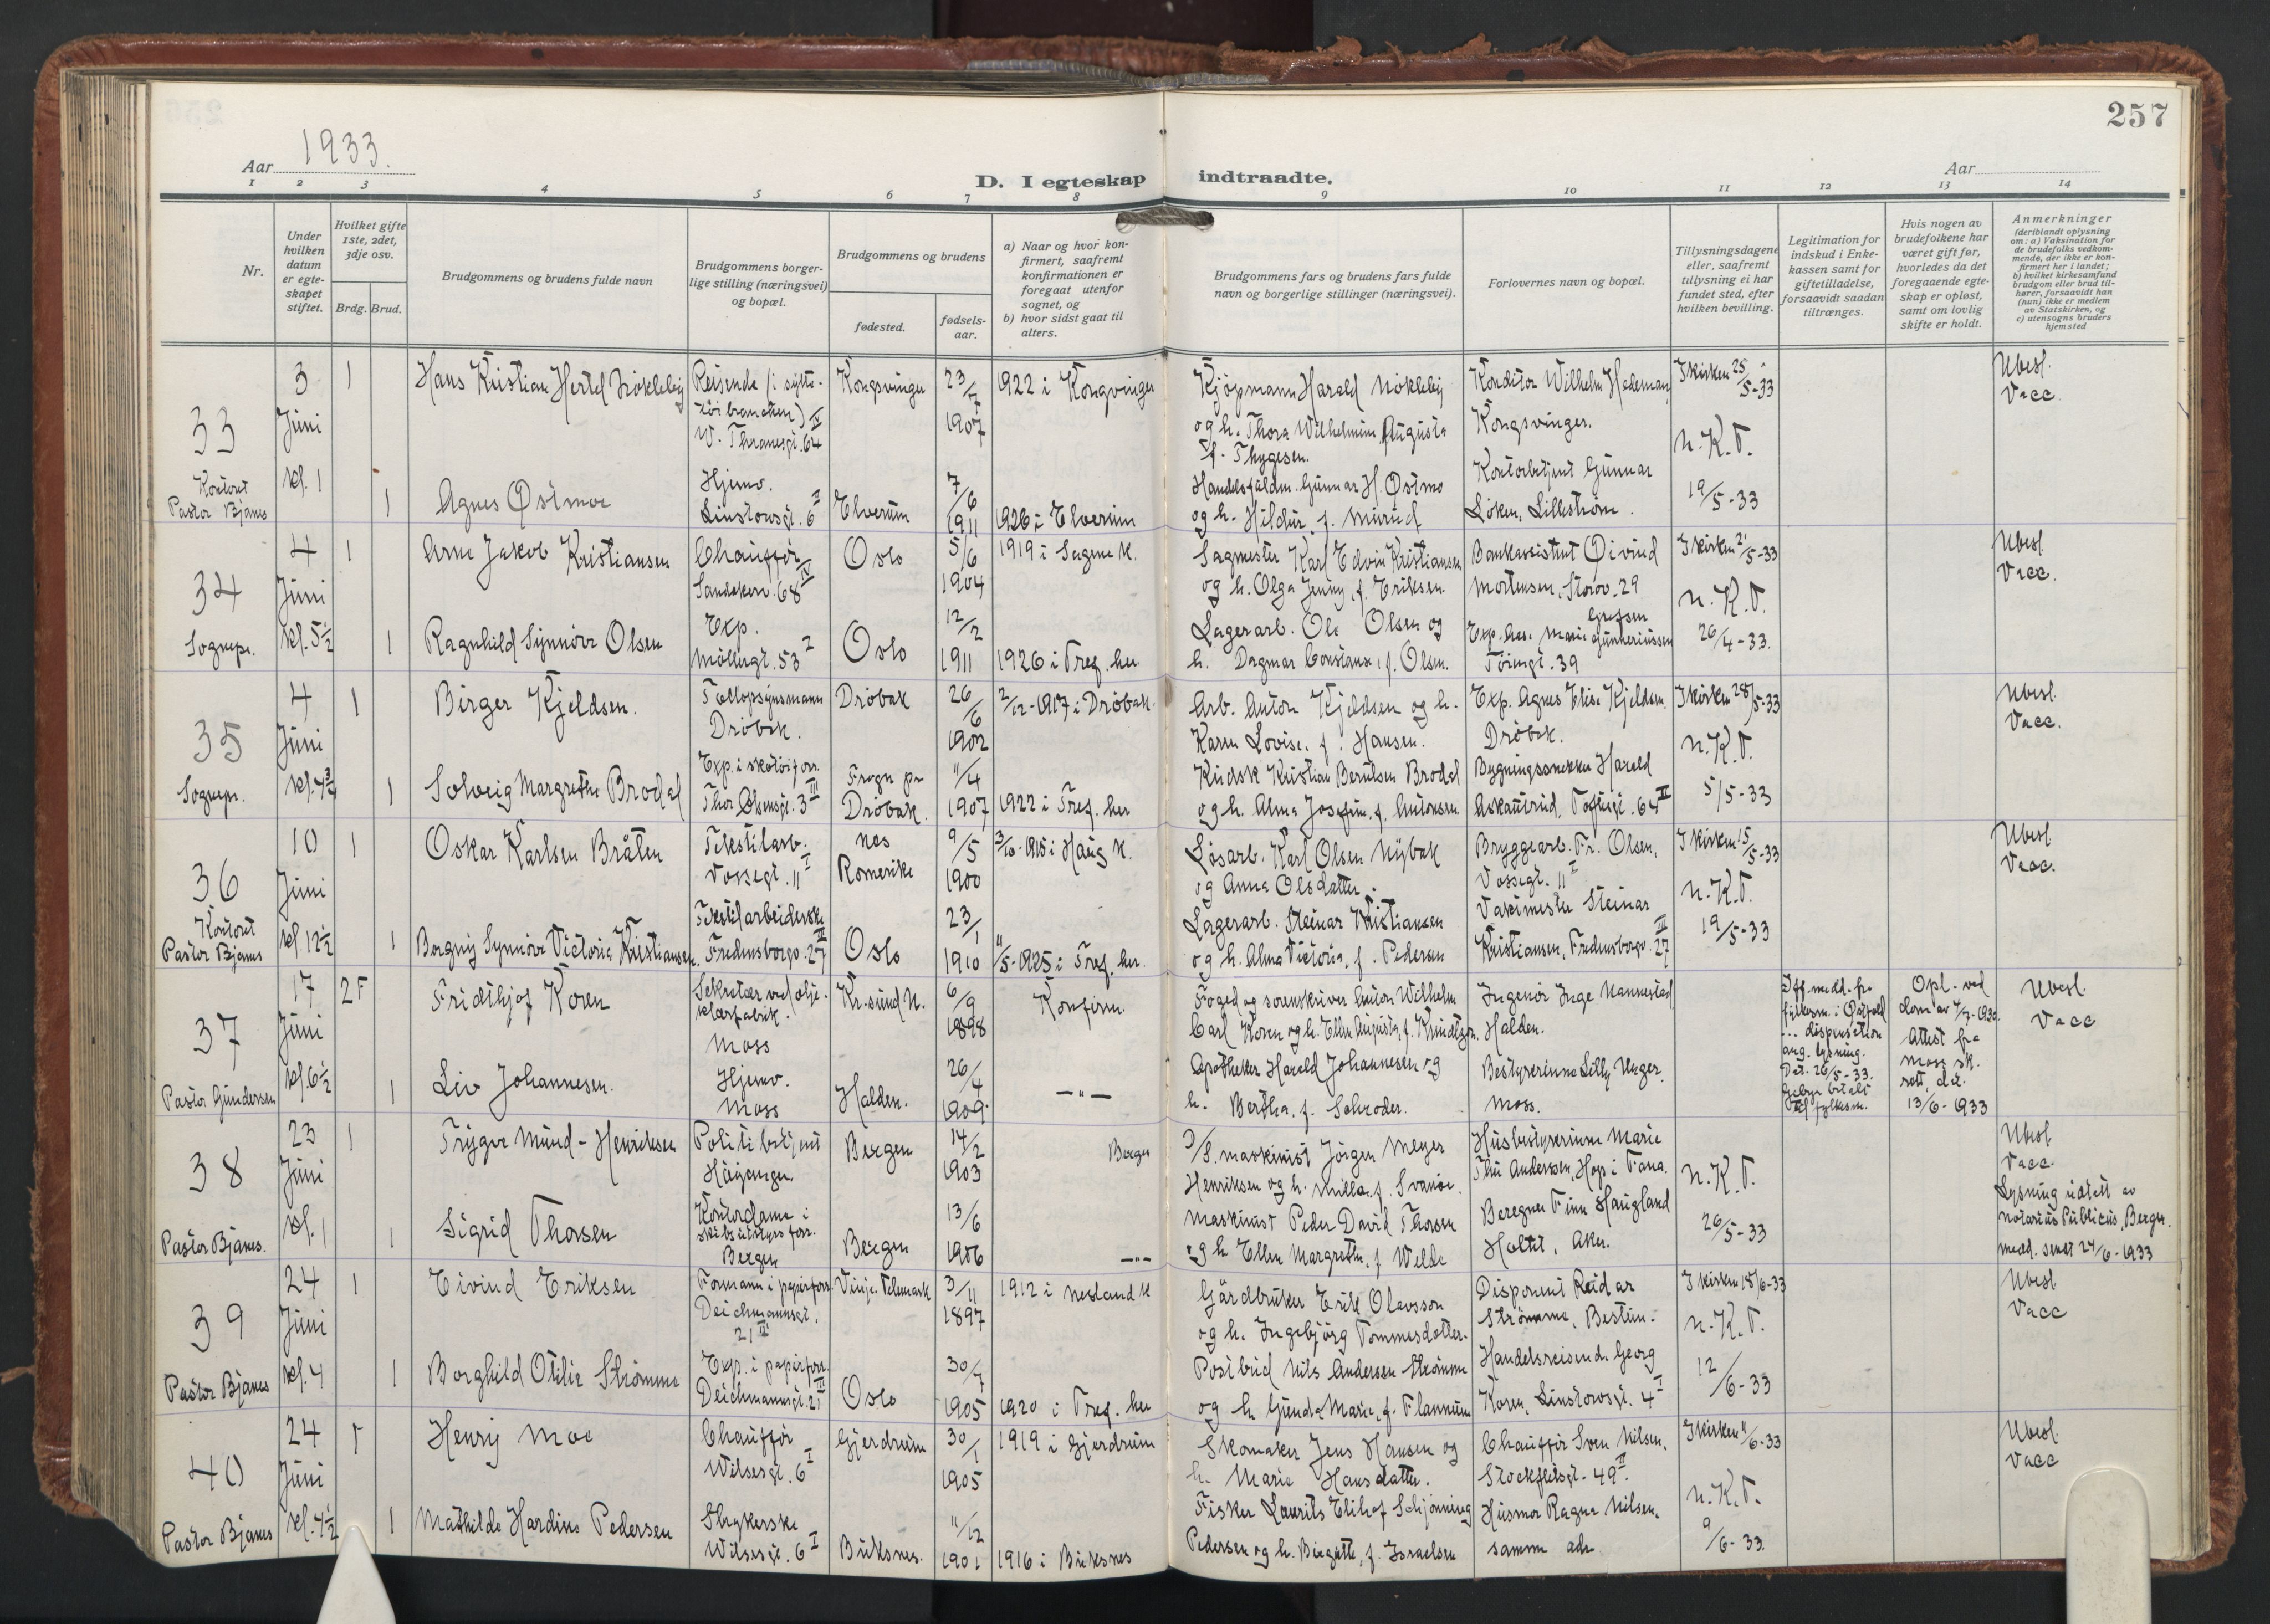 257
Aar 1933.
D. I egteskap indtraadte.
Aar
1 2 3 4 5 6 7 8 9 10 11 12 13 14
Nr.
Under hvilken datum er egte-skapet stiftet.
Hvilket gifte 1ste, 2det, 3dje osv.
Brdg. Brud.
Brudgommens og brudens fulde navn
Brudgommens borger-lige stilling (næringsvei) og bopæl.
Brudgommens og brudens
fødested.
fødsels-aar.
a) Naar og hvor kon-firmert, saafremt konfirmationen er foregaat utenfor sognet, og
b) hvor sidst gaat til alters.
Brudgommens fars og brudens fars fulde navn og borgerlige stillinger (næringsvei).
Forlovernes navn og bopæl.
Tillysningsdagene eller, saafremt tillysning ei har fundet sted, efter hvilken bevilling.
Legitimation for indskud i Enke-kassen samt for giftetilladelse, forsaavidt saadan tiltrænges.
Hvis nogen av brudefolkene har været gift før, hvorledes da det foregaaende egte-skap er opløst, samt om lovlig skifte er holdt.
Anmerkninger (deriblandt oplysning om: a) Vaksination for de brudefolks vedkom-mende, der ikke er kon-firmert her i landet; b) hvilket kirkesamfund brudgom eller brud til-hører, forsaavidt han (hun) ikke er medlem av Statskirken, og c) utensogns bruders hjemsted
33 Kontoret Pastor Bjanes
3 Juni kl. 1
1 Hans Kristian Hertel Nökleby
W. Thranesgt. 64 II
Kongsvinger 23/7 1907 1922 i Kongsvinger
Kjöpmann Harald Nökleby og h. Thora Wilhelmine Augusta f. Thygesen.
Konditor Wilhelm Hedeman Kongsvinger.
I kirken 25/5-33 N.K.T. 19/5-33
Ubesl. Vacc.
1 Agnes Østmoe
Hjemv. Linstowsgt. 6 II
Elverum 7/6 1911 1926 i Elverum
Gunnar H. Østmo og h. Hildur, f. Murud
Kontorbetjent Gunnar Löken, Lilleström.
34 Sognepr.
4 Juni kl. 5 1/2
1 Arne Jakob Kristiansen
Chaufför Sandakerv. 68 IV
Oslo 5/6 1904 1919 i Sagene k.
Sagmester Karl Edvin Kristiansen og h. Olga Jenny, f. Eriksen
Bankassistent Øivind Mortensen, Storov. 29 Grefsen
I kirken 21/5-33 N.K.T. 26/4-33.
Ubesl. Vacc.
1 Ragnhild Synnöve Olsen
Exp. Möllergt. 53 2
Oslo 12/2 1911 1926 i Tref. her
Lagerarb. Ole Olsen og h. Dagmar Constanse, f. Olsen.
Marie Gunneriussen Töiengt. 39
35 Sognepr.
4 Juni kl. 4 3/4
1 Birger Kjeldsen.
Tollopsynsmann Dröbak.
Dröbak 26/6 1902 2/12-1917 i Dröbak.
Arb. Anton Kjeldsen og h. Karen Lovise, f. Hansen.
Exp. Agnes Elise Kjeldsen. Dröbak.
I kirken 28/5-33 N.K.T. 5/5-33
Ubesl. Vacc.
1 Solveig Margrethe Brodal
Exp. i skotöiforr. Thor Olsensgt. 3 III
Frogn pr Dröbak. 11/4 1907 1922 i Tref. her
Kudsk Kristian Berntsen Brodal og h. Alma Josefine, f. Antonsen
Bygningssnekker Harald Askautrud, Toftesgt. 64 II
36 Kontoret Pastor Bjanes
10 Juni kl. 12 1/2
1 Oskar Karlsen Bråten
Tekstilarb. Vossegt. 11 I
Nes Romerike 9/5 1900 3/6-1915 i Haug k.
Lösarb. Karl Olsen Nybak og Anna Olsdatter.
Bryggearb. Fr. Olsen, Vossegt. 11 I
I kirken 15/5-33 N.K.T. 19/5-33
Ubesl. Vacc.
1 Borgny Synnöve Victoria Kristiansen.
Tekstilarbeiderske Fredensborgv. 27 III
Oslo 23/1 1910 11/5-1925 i Tref. her.
Lagerarb. Steinar Kristiansen og h. Alma Victoria, f. Pedersen
Vaktmester Steinar Kristiansen, Fredensborgv. 27 III
37 Pastor Gundersen
17 Juni kl. 6 1/2
2F Fridthjof Koren
Sekretær ved oljeklærfabrik. Moss
Kr.sund N. 6/9 1898 Konfirm.
Foged og sorenskriver Anton Wilhelm Carl Koren og h. Ellen Augusta, f. Knudtzon.
Ingeniör Inge Nannestad Halden.
Iflg. medd. fra fylkesm. i Østfold dispensation ang. lysning. Dat. 26/5-33. Gebyr betalt til fylkesm.
Opl. ved dom av 4/7-1930. Attest fra Moss sk. rett, dat. 13/6-1933
Ubesl. Vacc
1 Liv Johannesen.
Hjemv. Moss
Halden. 26/4 1909. —"—
Apotheker Harald Johannesen og h. Bertha, f. Schröder.
Bestyrerinne Lilly Unger. Moss.
38 Pastor Bjanes.
23 Juni kl. 1
1 Trygve Mund-Henriksen
Politibetjent Höyanger.
Bergen 14/2 1903 Bergen
D/S. maskinist Jörgen Meyer Henriksen og h. Milla, f. Svanöe.
Husbestyrerinne Marie Thu Andersen, Hop i Fana.
N.K.T. 26/5-33
Ubesl. Vacc. Lysning utstedt av Notarius Publicus, Bergen. medd. sendt 24/6-1933
1 Sigrid Thorsen
Kontordame i skibsutstyrsforr. Bergen
Bergen 13/6 1906 —"—
Maskinist Peder David Thorsen og h. Ellen Margrethe, f. Welde
Beregner Finn Haugland Holtet, Aker.
39 Pastor Bjanes
24 Juni kl. 4
1 Eivind Eriksen
Formann i papirforr. Deichmannsgt. 21 III
Vinje. Telemark 3/11 1897 1912 i Nesland k
Gårdbruker Erik Olavsson og h. Ingebjörg Tommesdatter.
Disponent Reidar Strömme, Bestun.
I kirken 18/6-33 N.K.T. 12/6-33
Ubesl. Vacc
1 Borghild Otilie Strömme
Exp. i papirforr. Deichmannsgt. 21 III
Oslo 30/7 1905 1920 i Tref. her
Postbud Nils Andersen Strömme og h. Gunda Marie, f. Flannum
Handelsreisende Georg Koren, Linstowsgt. 4 I
40 Pastor Bjanes
24 Juni kl. 4 1/2
1 Henry Moe
Chaufför Wilsesgt. 6 I
Gjerdrum 30/1 1905 1919 i Gjerdrum
Skomaker Jens Hansen og h. Marie Hansdatter.
Chaufför Sven Nilsen. Stockfletsgt. 49 II
I kirken 11/6-33 N.K.T. 9/6-33.
Ubesl. Vacc
1 Mathilde Hardine Pedersen
Strykerske Wilsesgt. 6 I
Buksnes. 11/12 1901 1916 i Buksnes
Fisker Laurits Elihof Schjönning Pedersen og h. Birgitte, f. Israelsen
Husmor Ragna Nilsen. samme adr